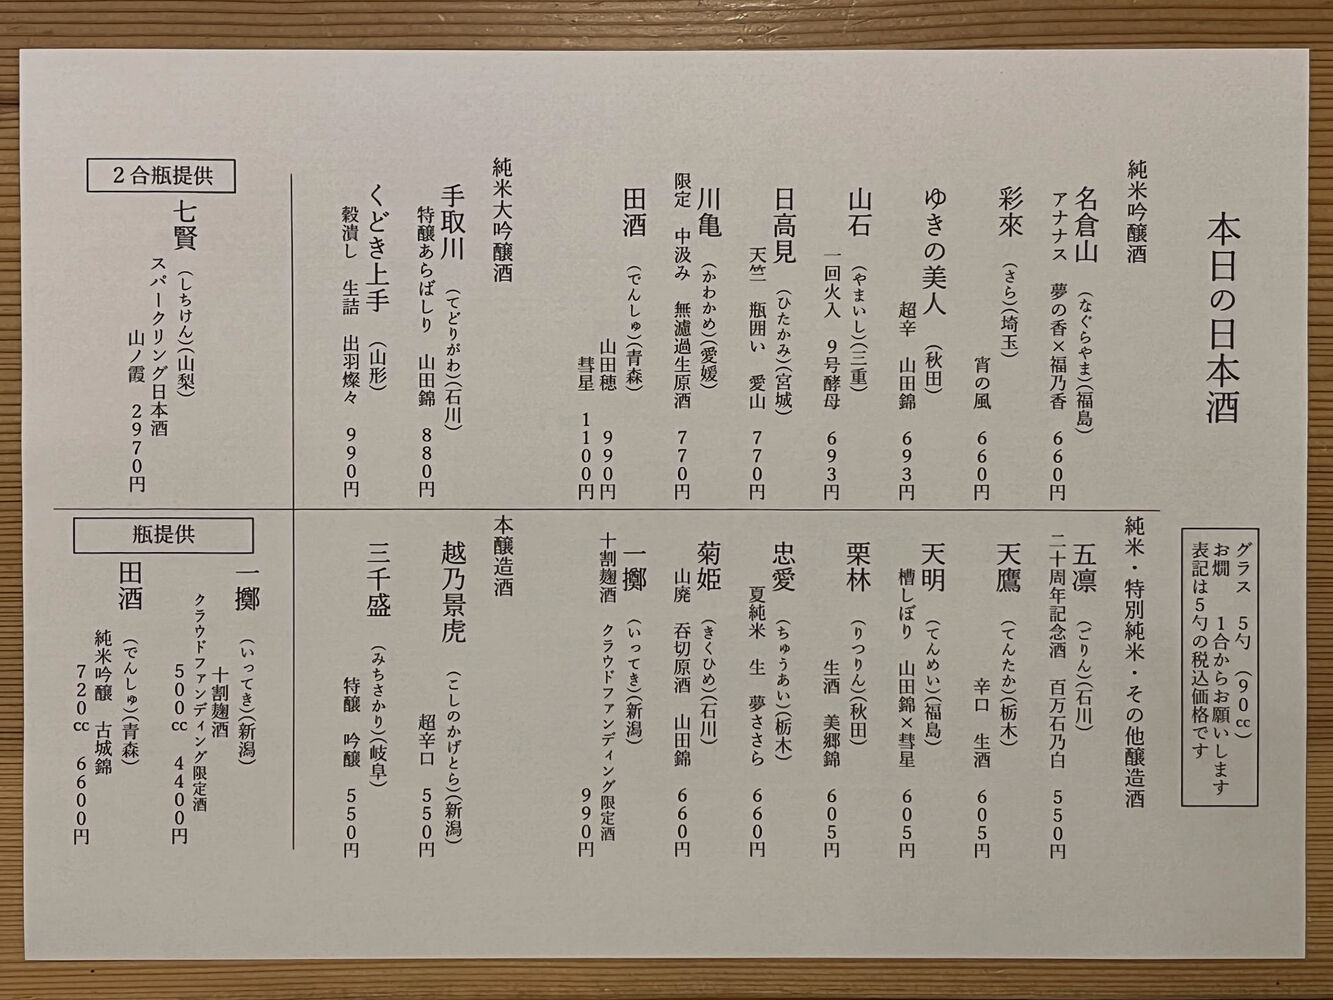 本日の日本酒
グラス 5勺 (90cc)
お燗 1合からお願いします
表記は5勺の税込価格です
純米吟醸酒
名倉山 (なぐらやま)(福島)
アナナス 夢の香×福乃香 660円
彩來 (さら)(埼玉)
宵の風 660円
ゆきの美人 (秋田)
超辛 山田錦 693円
山石 (やまいし)(三重)
一回火入 9号酵母 693円
日高見 (ひたかみ)(宮城)
天竺 瓶囲い 愛山 770円
川亀 (かわかめ)(愛媛)
限定 中汲み 無濾過生原酒 770円
田酒 (でんしゅ)(青森)
山田穂 990円
彗星 1100円
純米大吟醸酒
手取川 (てどりがわ)(石川)
特醸あらばしり 山田錦 880円
くどき上手 (山形)
穀潰し 生詰 出羽燦々 990円
純米・特別純米・その他醸造酒
五凛 (ごりん)(石川)
二十周年記念酒 百万石乃白 550円
天鷹 (てんたか)(栃木)
辛口 生酒 605円
天明 (てんめい)(福島)
槽しぼり 山田錦×彗星 605円
栗林 (りつりん)(秋田)
生酒 美郷錦 605円
忠愛 (ちゅうあい)(栃木)
夏純米 生 夢ささら 660円
菊姫 (きくひめ)(石川)
山廃 呑切原酒 山田錦 660円
一擲 (いってき)(新潟)
十割麹酒 クラウドファンディング限定酒
990円
本醸造酒
越乃景虎 (こしのかげとら)(新潟)
超辛口 550円
三千盛 (みちさかり)(岐阜)
特醸 吟醸 550円
2合瓶提供
七賢 (しちけん)(山梨)
スパークリング日本酒
山ノ霞 2970円
瓶提供
一擲 (いってき)(新潟)
十割麹酒
クラウドファンディング限定酒
500cc 4400円
田酒 (でんしゅ)(青森)
純米吟醸 古城錦
720cc 6600円